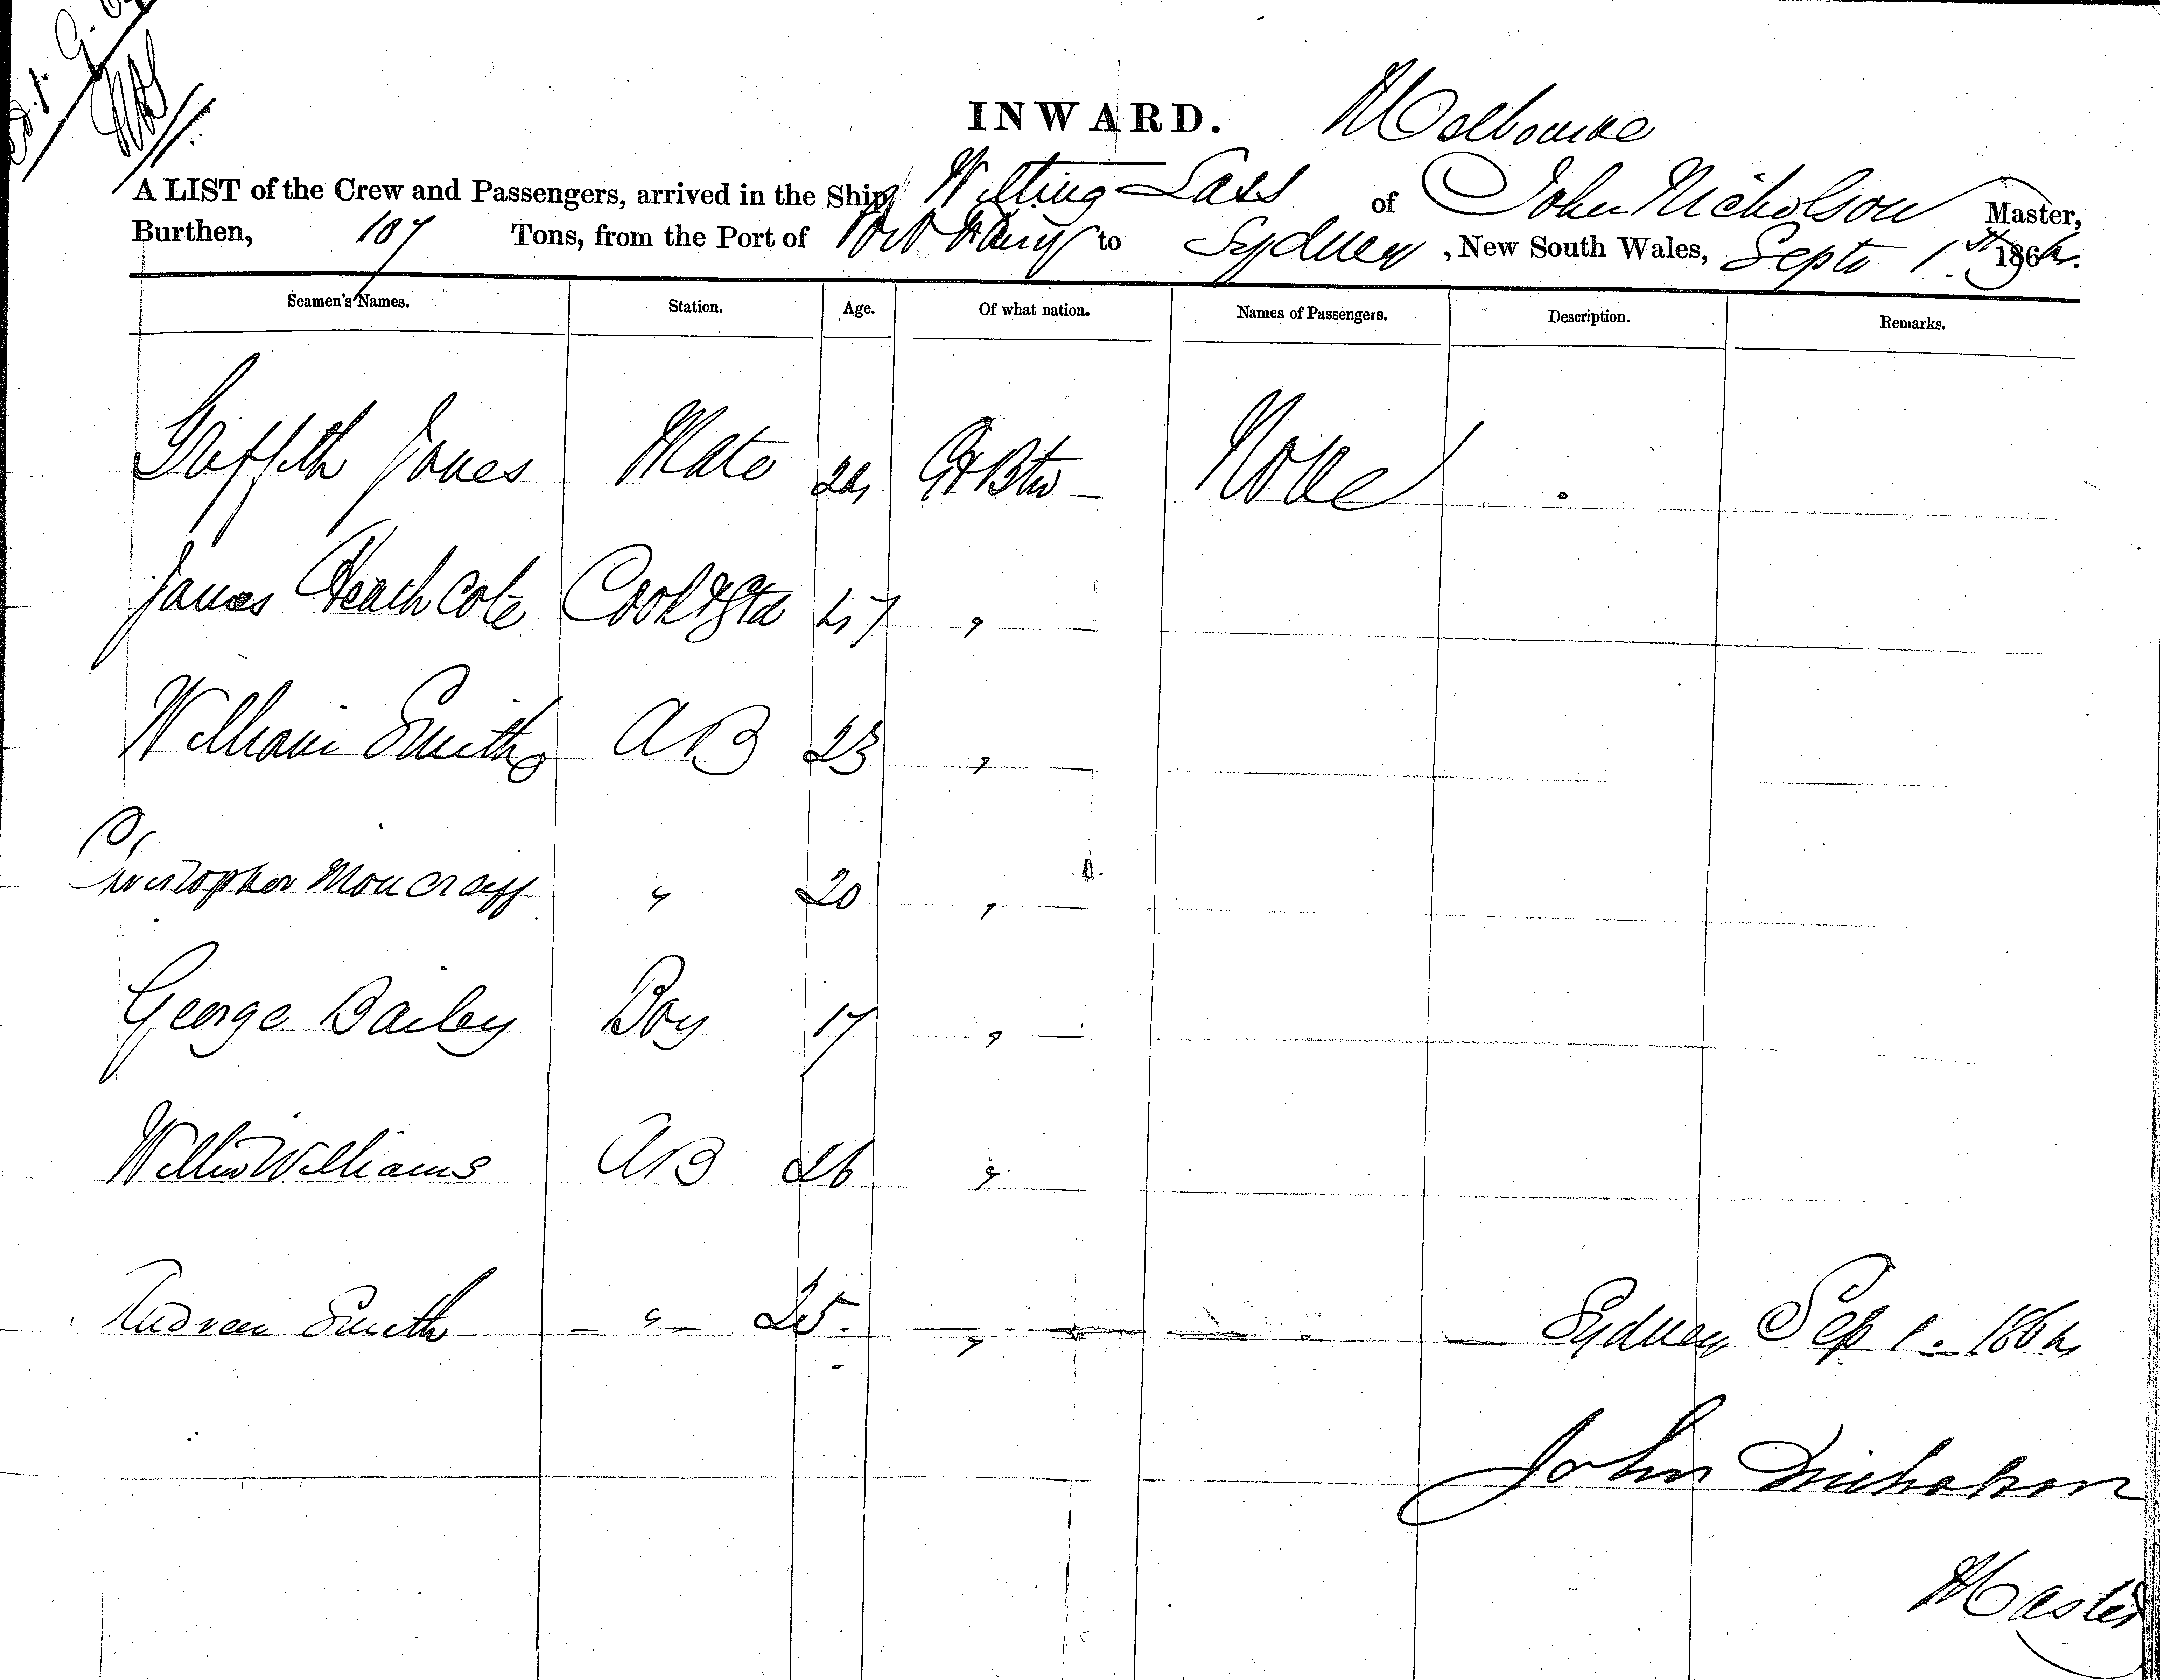 INWARD. Melbourne
A LIST of the Crew and Passengers, arrived in the Ship Lass of John Nicholson Master,
Burthen, 107 Tons, from the Port of to Sydney, New South Wales, Septr 1st 1864.
Seamen's Names. Station. Age. Of what nation. Names of Passengers. Description. Remarks.
Griffith Jones Mate 24 Gt Btn None
James Heathcote Cook & Std 47 "
William Smith AB 23 "
Christopher Moncraiff " 20 "
George Bailey Boy 17 "
Willm Williams AB 26 "
Andrew Smith " 25 " Sydney Sep 1. 1864
John Nicholson
Master